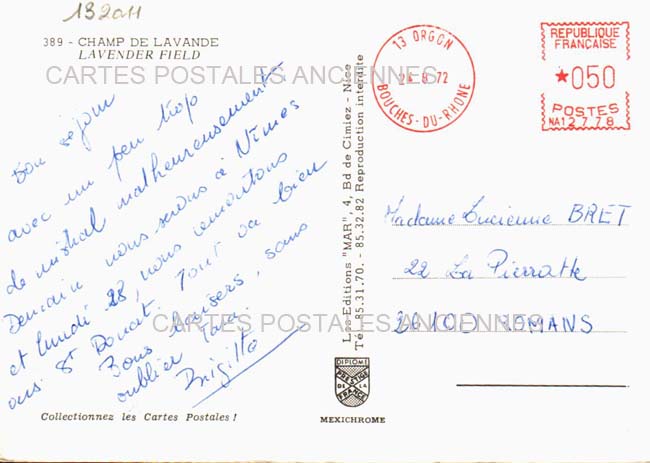 132011
389 - CHAMP DE LAVANDE
LAVENDER FIELD
CARTES POSTALES ANCIENNES
Bon séjour
avec un peu trop
de mistral malheureusement
Demain nous serons à Nîmes
et lundi 28, nous remontons
St Donat. Tout va bien
Bons baisers, sans
oublier
Brigitte
Collectionnez les Cartes Postales !
Les Editions "MAR", 4, Bd de Cimiez - Nice
Tél. 85.31.70. - 85.32.82 Reproduction interdite
DIPLOME
PRESTIGE
DE LA
FRANCE
MEXICHROME
13 ORGON
24 8 72
BOUCHES-DU-RHONE
REPUBLIQUE
FRANÇAISE
*050
POSTES
NA12778
Madame Lucienne BRET
22 La Pierrotte
26100 ROMANS
CARTES POSTALES ANCIENNES